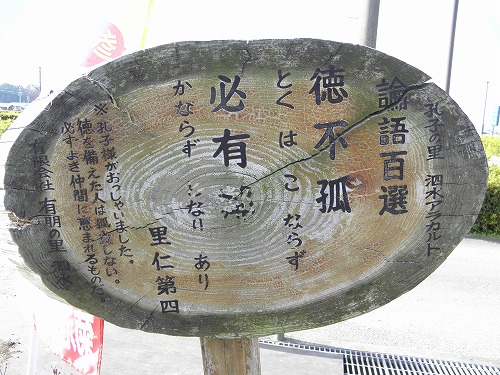 孔子の里 泗水アラカルト
論語百選
徳不孤
とく は こ ならず
必有
かならず となり あり
里仁第四
※孔子様がおっしゃいました。
徳を備えた人は孤立しない。
必ずよき仲間に恵まれるものだ。
有限会社 有朋の里 泗水